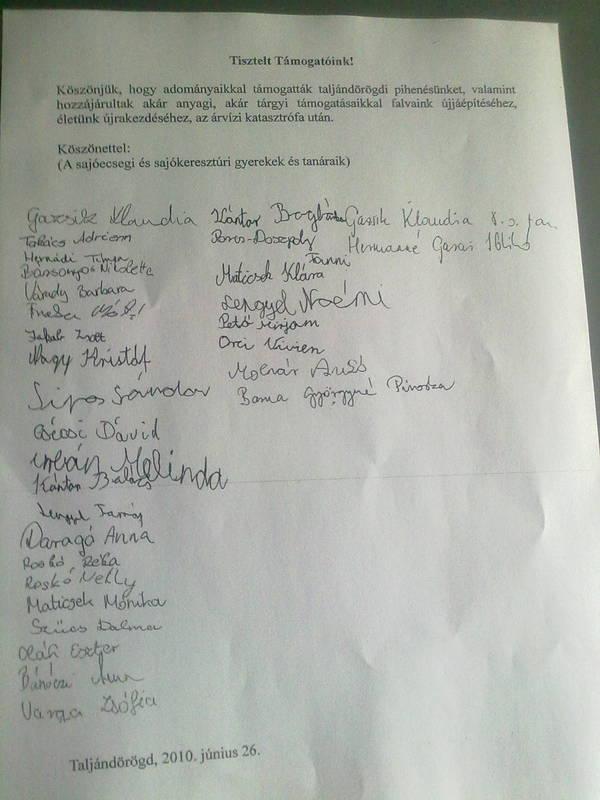 Tisztelt Támogatóink!
Köszönjük, hogy adományaikkal támogatták taljándörögdi pihenésünket, valamint
hozzájárultak akár anyagi, akár tárgyi támogatásaikkal falvaink újjáépítéséhez,
életünk újrakezdéséhez, az árvízi katasztrófa után.
Köszönettel:
(A sajóecsegi és sajókeresztúri gyerekek és tanáraik)
Garcsik Klaudia
Takács Adrienn
Hernádi Tímea
Bársonyos Nikolette
Várady Barbara
Jakab Zsolt
Nagy Kristóf
Sipos Sándor
Csécsi Dávid
Urbán Melinda
Kántor Balázs
Lengyel Tamás
Daragó Anna
Roskó Réka
Roskó Nelly
Maticsek Mónika
Szűcs Dalma
Oláh Eszter
Varga Zsófia
Kántor Boglárka
Fanni
Maticsek Klára
Lengyel Noémi
Pető Mirjam
Orci Vivien
Molnár
Barna Györgyné Piroska
Klaudia
Hermanné Garai Ildikó
Taljándörögd, 2010. június 26.